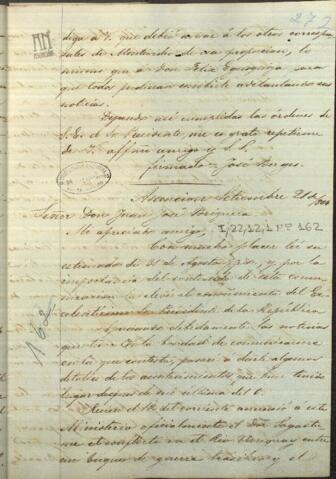 digo a V. que debió avisar á los otros corresponsales de Montevideo
lo mismo que á Don Felix Egusquiza, para
que todos pudieran escribirle adelantando sus
noticias.
Dejando así cumplidas las órdenes de
S. E. el Sr. Presidente, me es grato repetirme
de V. affmo. amigo y S. S.
firmado José Berges.
Asuncion Setiembre 21 de
Señor Don Juan José Brizuela
Mi apreciado amigo,
I,22,12,1 Nº 162
Con mucho placer leí su
estimada de 31 de Agosto ppdo. y por la
importancia del contenido de esta comunicacion
la elevé al conocimiento del
Excelentísimo Sr. Presidente de la República
Apreciando debidamente las noticias
que tuvo V. la bondad de comunicarme
en la que contesto, pasaré á darle algunos
detalles de los acontecimientos que han tenido
lugar despues de mi última del 6.
162
del corriente anunció á este
Ministerio oficialmente el Dor. Sagastume
el conflicto en el Rio Uruguay entre
un buque de guerra brasilero y el